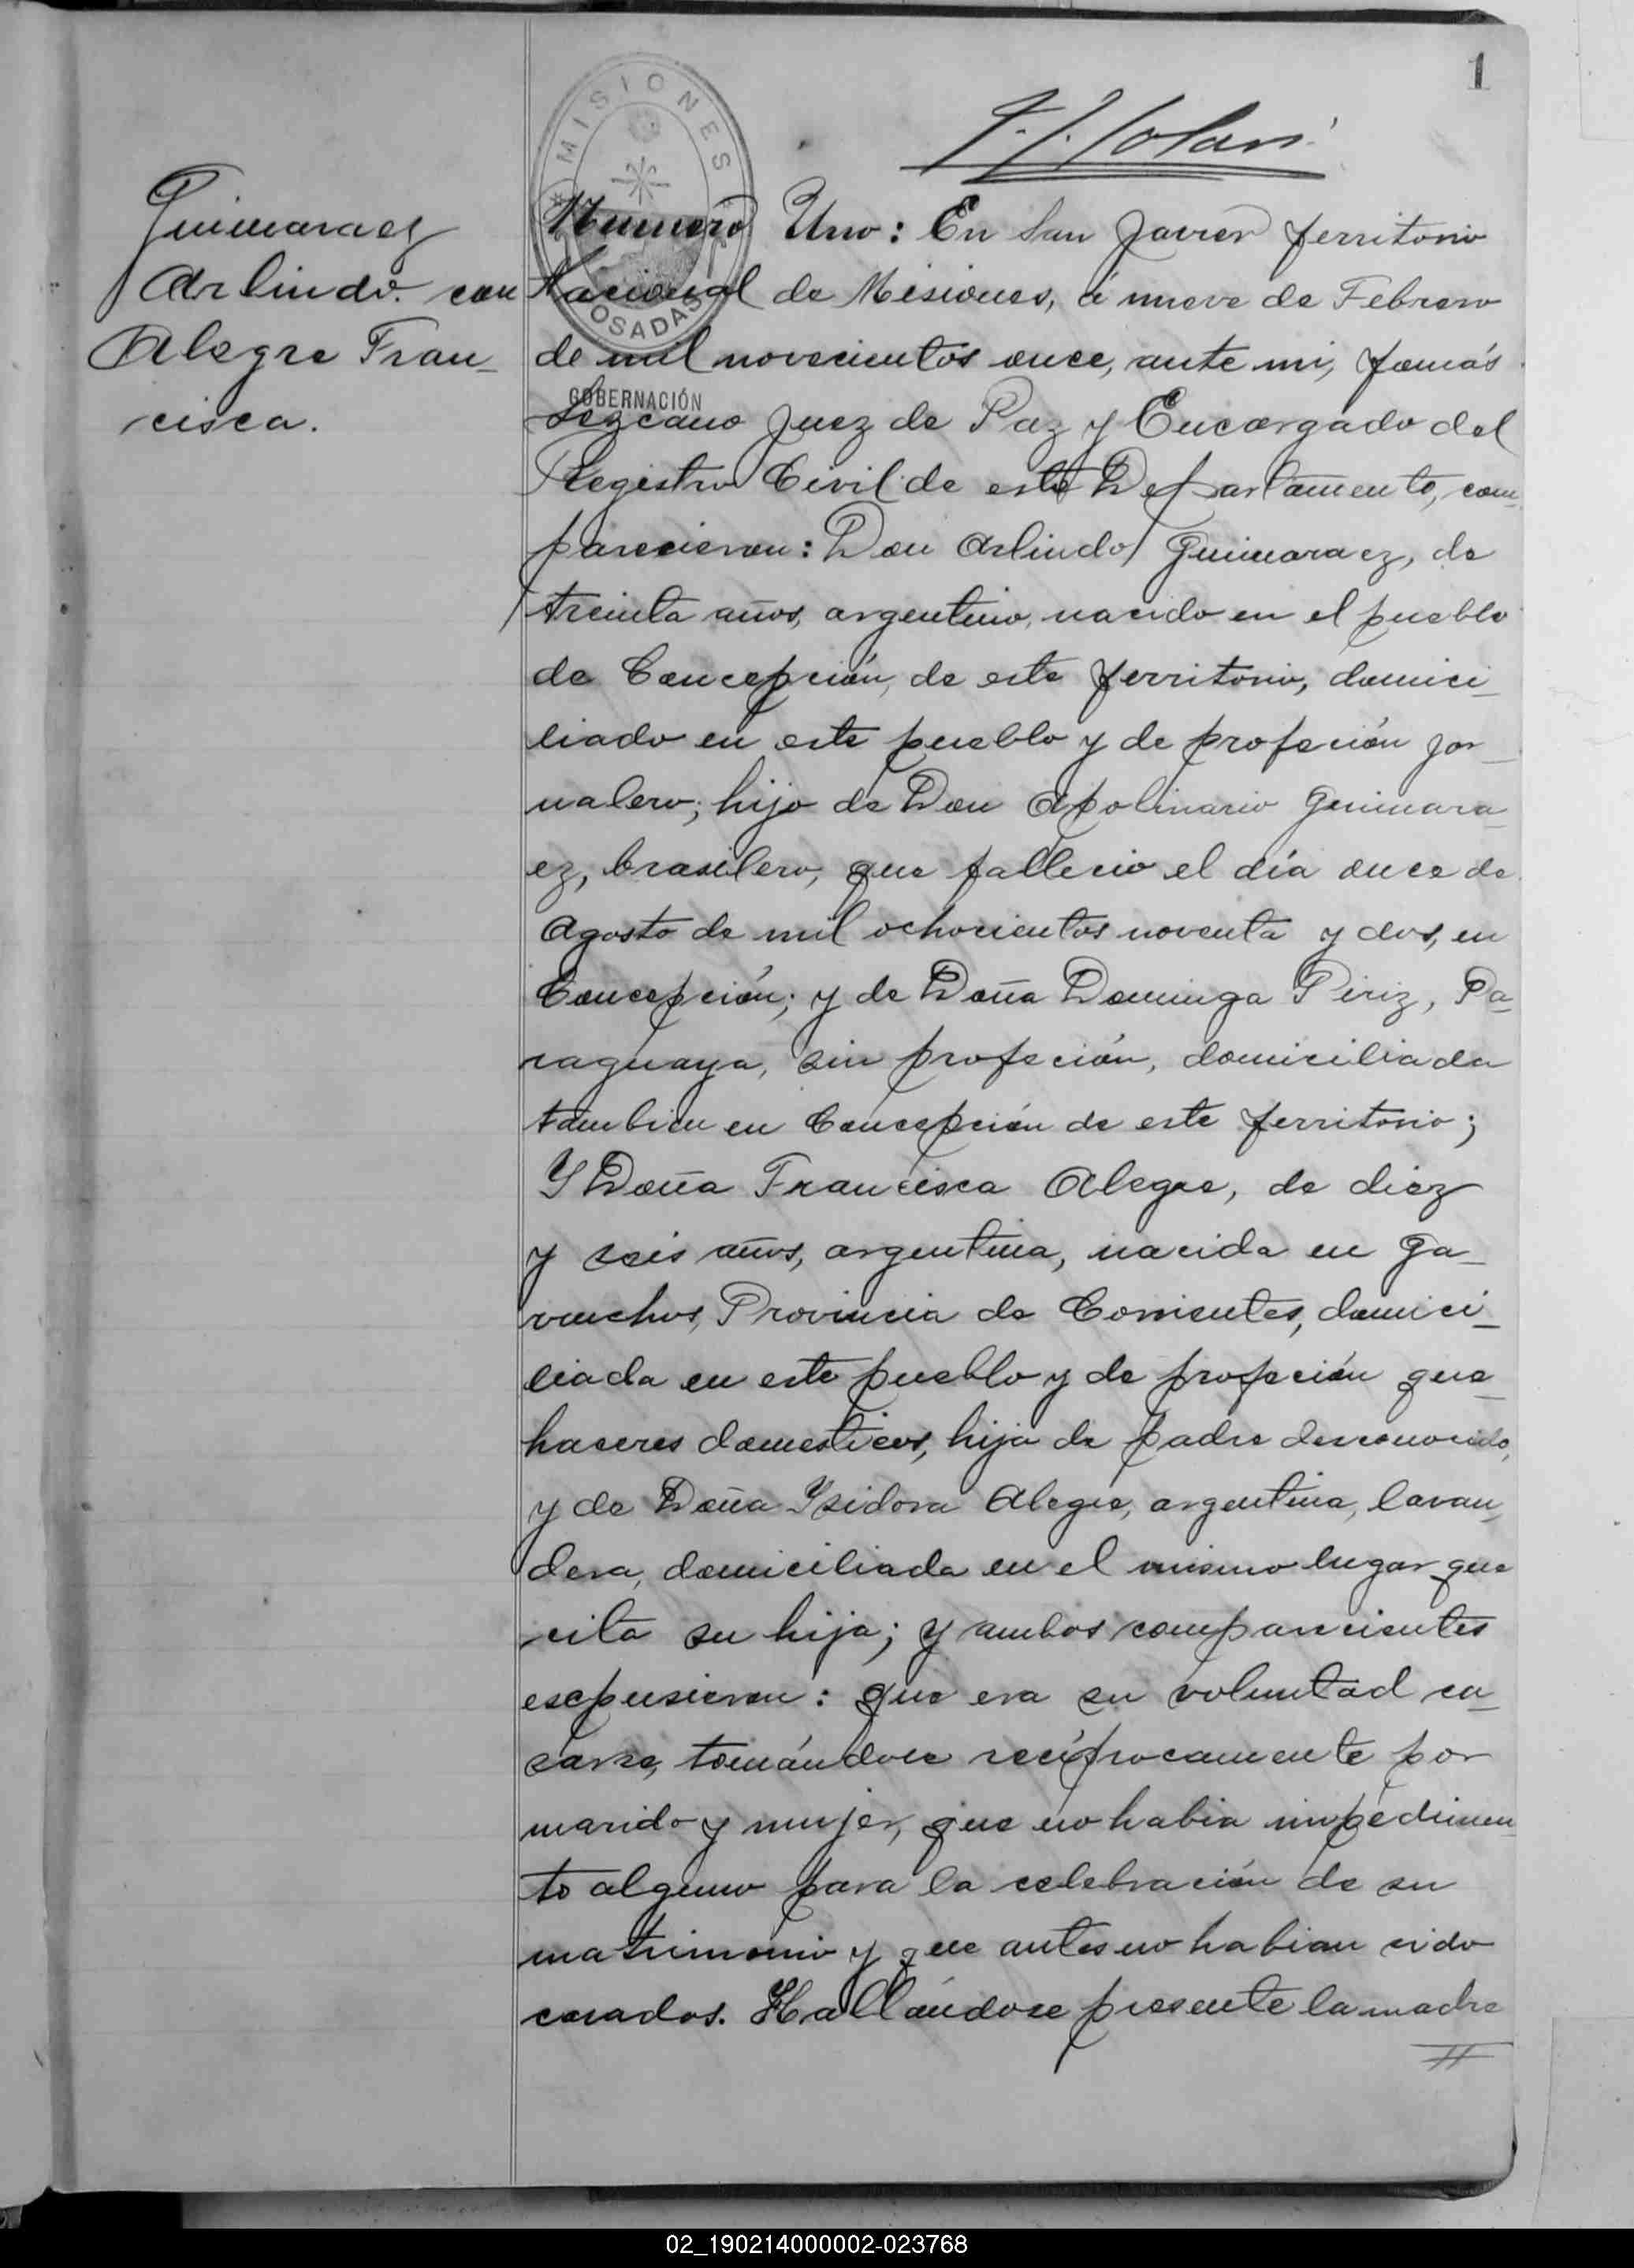 1
MISIONES
POSADAS
GOBERNACIÓN
Guimaraez
Arlindo. con
Alegre Fran_
cisca.
Numero Uno: En San Javier Territorio
Nacional de Misiones, á nueve de Febrero
de mil novecientos once, ante mi, Tomás
Lezcano Juez de Paz y Encargado del
Registro Civil de este Departamento, com_
parecieron: Don Arlindo Guimaraez, de
treinta años, argentino, nacido en el pueblo
de Concepción, de este Territorio, domici_
liado en este pueblo y de profeción jor_
nalero; hijo de Don Apolinario Guimara_
ez, brasilero, que fallecio el día once de
Agosto de mil ochocientos noventa y dos, en
Concepción; y de Doña Dominga Piriz, Pa_
raguaya, sin profeción, domiciliada
tambien en Concepción de este Territorio;
Y Doña Francisca Alegre, de diez
y seis años, argentina, nacida en Ga_
ruchos, Provincia de Corrientes, domici_
liada en este pueblo y de profeción que_
haceres domesticos, hija de padre desconocido,
y de Doña Ysidora Alegre, argentina, lavan_
dera, domiciliada en el mismo lugar que
cita su hija; y ambos comparecientes
escpusieron: que era su voluntad ca_
sarse, tomándose recíprocamente por
marido y mujer, que no habia impedimen_
to alguno para la celebración de su
matrimonio y que antes no habian sido
casados. Hallándose presente la madre
02_190214000002-023768